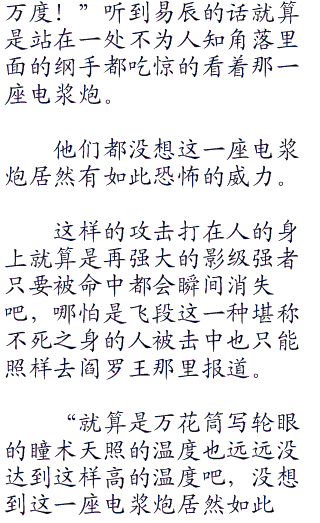 万度！”听到易辰的话就算
是站在一处不为人知角落里
面的纲手都吃惊的看着那一
座电浆炮。
他们都没想这一座电浆
炮居然有如此恐怖的威力。
这样的攻击打在人的身
上就算是再强大的影级强者
只要被命中都会瞬间消失
吧，哪怕是飞段这一种堪称
不死之身的人被击中也只能
照样去阎罗王那里报道。
“就算是万花筒写轮眼
的瞳术天照的温度也远远没
达到这样高的温度吧，没想
到这一座电浆炮居然如此